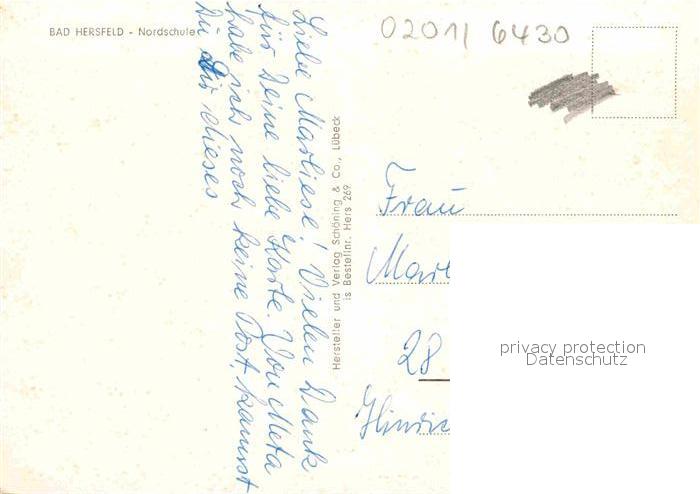 BAD HERSFELD - Nordschule
02011 6430
Liebe Marliese! Vielen Dank
für Deine liebe Karte. Von Meta
habe ich noch keine Post, kannst
Du dieses
Hersteller und Verlag Schöning & Co., Lübeck
is Bestellnr. Hers 269
Frau
Marl
28
Hinric
privacy protection
Datenschutz